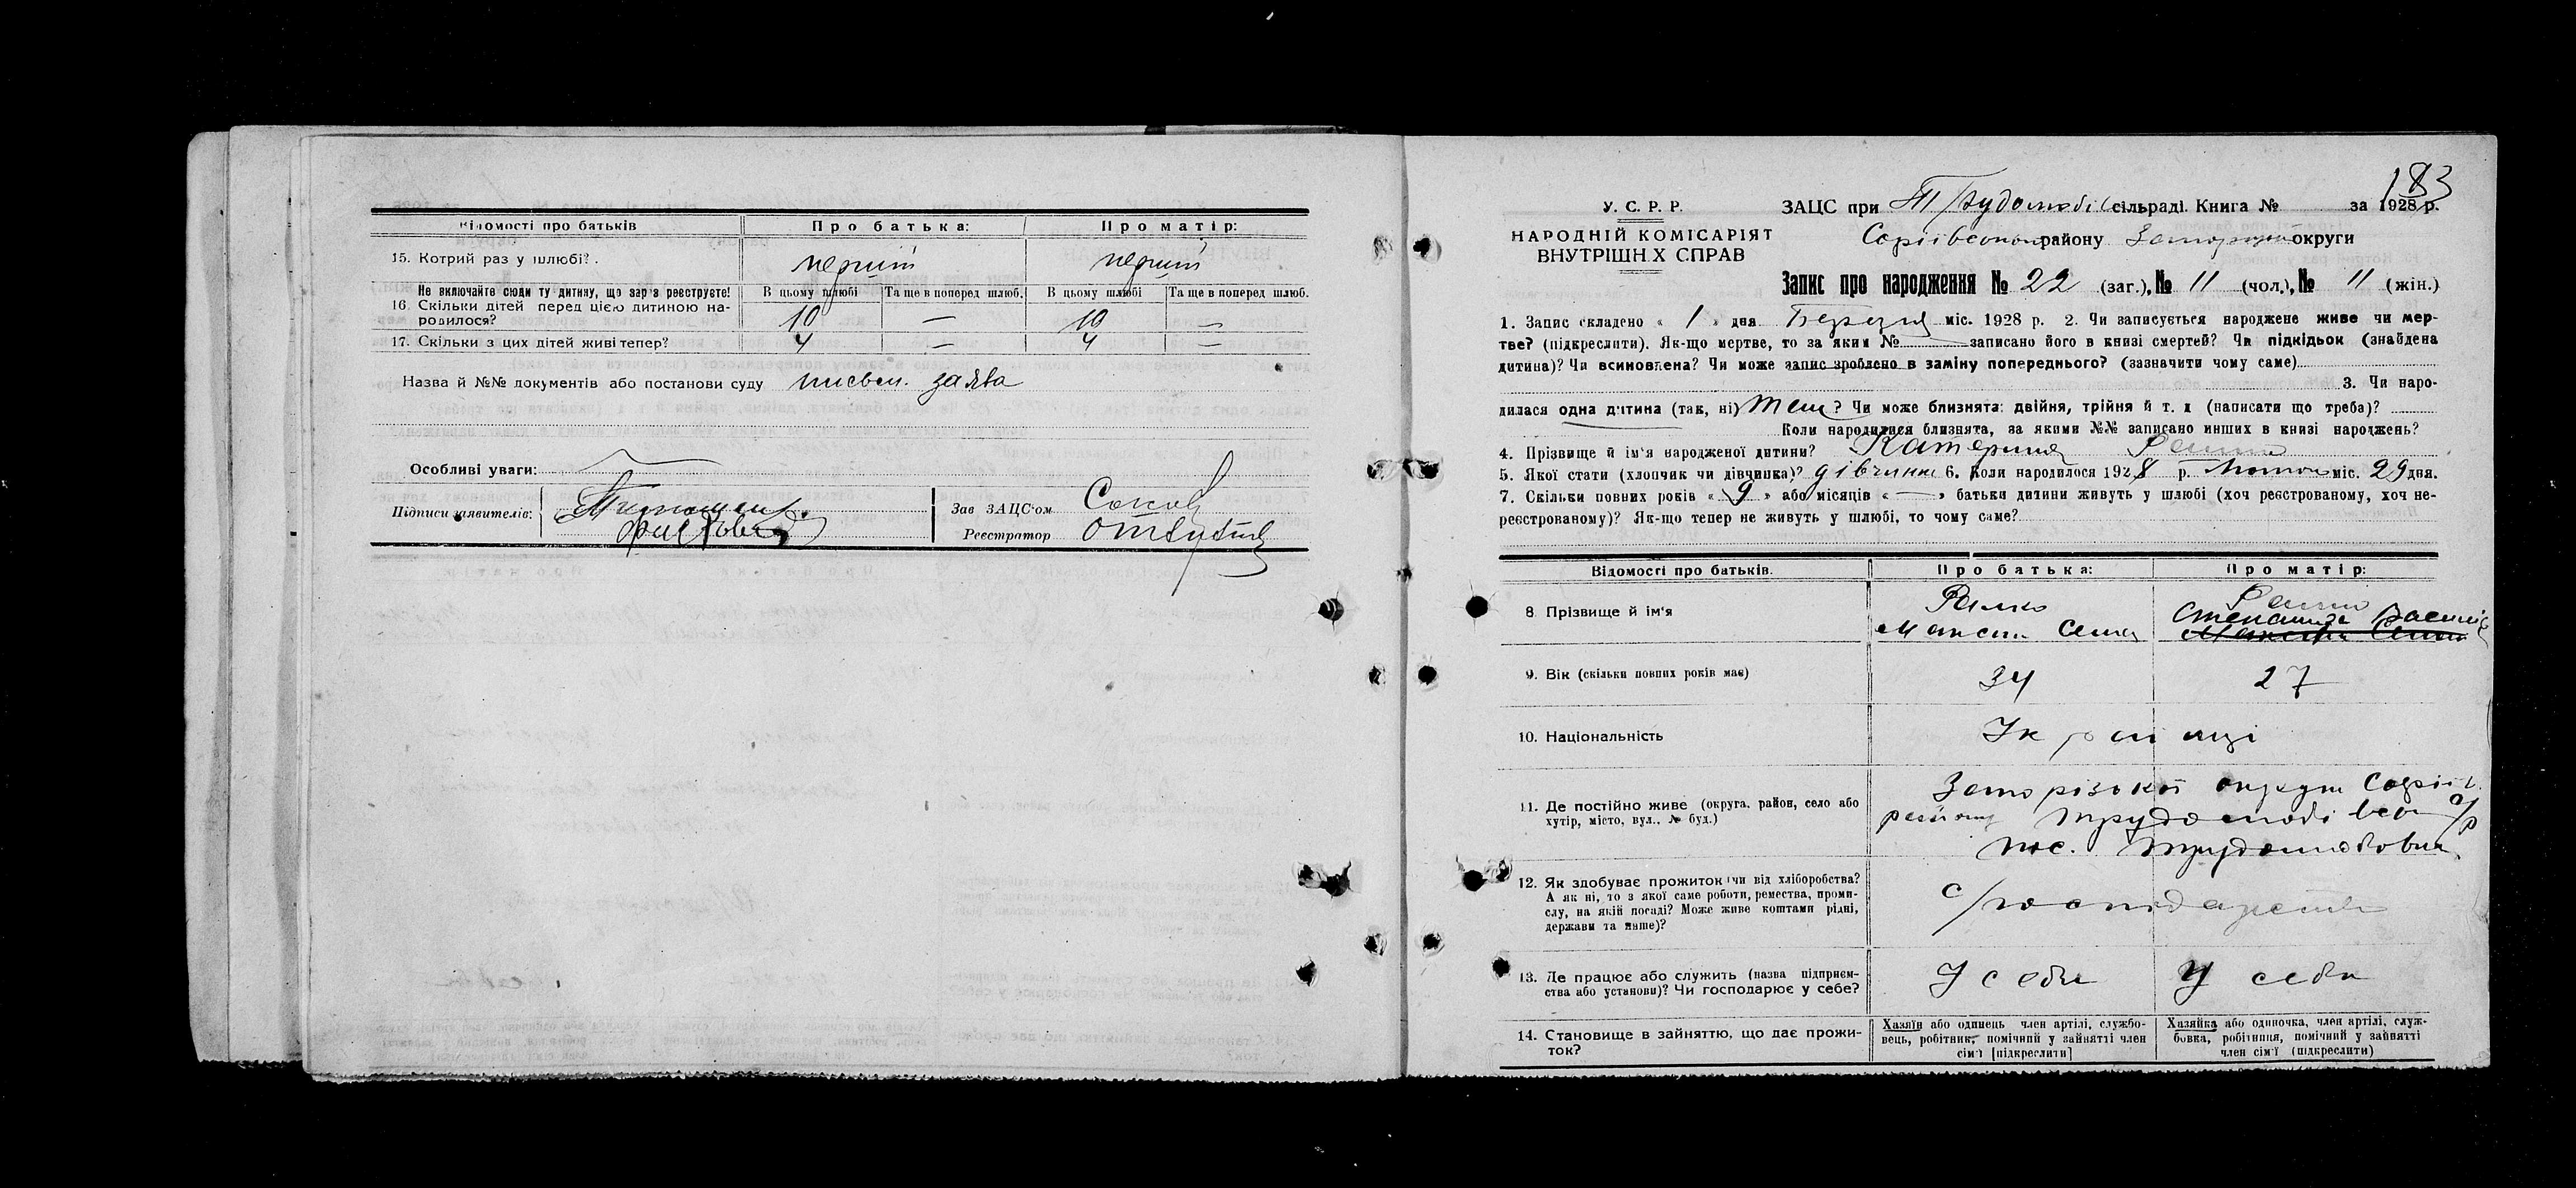 Відомості про батьків
Про батька:
Про матір:
15. Котрий раз у шлюбі?
перший
перший
Не включайте сюди ту дитину, що зараз реєструєте!
В цьому шлюбі
Та ще в поперед шлюб.
В цьому шлюбі
Та ще в поперед шлюб.
16. Скільки дітей перед цією дитиною на-
родилося?
10
—
10
—
17. Скільки з цих дітей живі тепер?
4
—
4
—
Назва й №№ документів або постанови суду письм. заява
Особливі уваги:
Підписи заявителів:
Зав ЗАЦС'ом
Реєстратор
183
У. С. Р. Р.
НАРОДНІЙ КОМІСАРІЯТ
ВНУТРІШНІХ СПРАВ
ЗАЦС при сільраді. Книга № за 1928 р.
району округи
Запис про народження № 22 (заг.), № 11 (чол.), № 11 (жін.)
1. Запис складено « 1 » дня Березня міс. 1928 р. 2. Чи записується народжене живе чи мер-
тве? (підкреслити). Як-що мертве, то за яким № записано його в книзі смертей? Чи підкідьок (знайдена
дитина)? Чи всиновлена? Чи може запис зроблено в заміну попереднього? (зазначити чому саме)
3. Чи наро-
дилася одна дитина (так, ні) так? Чи може близнята: двійня, трійня й т. д (написати що треба)?
Коли народилися близнята, за якими №№ записано инших в книзі народжень?
4. Прізвище й ім'я народженої дитини? Катерина
5. Якої стати (хлопчик чи дівчинка)? дівчинка 6. Коли народилося 1928 р. Лютого міс. 29 дня.
7. Скільки повних років « 9 » або місяців « — » батьки дитини живуть у шлюбі (хоч реєстрованому, хоч не-
реєстрованому)? Як-що тепер не живуть у шлюбі, то чому саме?
Відомості про батьків.
Про батька:
Про матір:
8. Прізвище й ім'я
Максим
9. Вік (скільки повних років має)
34
27
10. Національність
Українці
11. Де постійно живе (округа, район, село або
хутір, місто, вул., № буд.)
Запорізької округи
району
пос.
12. Як здобуває прожиток (чи від хліборобства?
А як ні, то з якої саме роботи, ремества, проми-
слу, на якій посаді? Може живе коштами рідні,
держави та инше)?
с/господарство
13. Де працює або служить (назва підприєм-
ства або установи)? Чи господарює у себе?
У себе
У себе
14. Становище в зайняттю, що дає прожи-
ток?
Хазяїн або одинець член артілі, службо-
вець, робітник, помічний у зайнятті член
сім'ї [підкреслити]
Хазяйка або одиночка, член артілі, служ-
бовка, робітниця, помічний у зайнятті
член сім'ї (підкреслити)